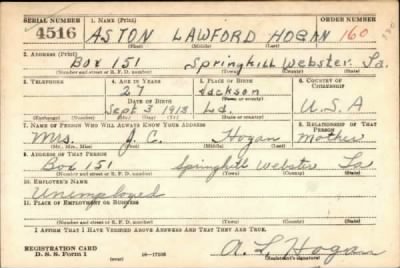 SERIAL NUMBER 1. NAME (Print) ORDER NUMBER
4516 ASTON LAWFORD HOGAN 160
(First) (Middle) (Last)
2. ADDRESS (Print)
Box 151 Springhill Webster La.
(Number and street or R. F. D. number) (Town) (County) (State)
3. TELEPHONE 4. AGE IN YEARS 5. PLACE OF BIRTH 6. COUNTRY OF CITIZENSHIP
27 Jackson
DATE OF BIRTH
Sept 3 1913 La. U.S.A
(Exchange) (Number) (Mo.) (Day) (Yr.) (State or country)
7. NAME OF PERSON WHO WILL ALWAYS KNOW YOUR ADDRESS 8. RELATIONSHIP OF THAT PERSON
Mrs. J. C. Hogan Mother
(Mr., Mrs., Miss) (First) (Middle) (Last)
9. ADDRESS OF THAT PERSON
Box 151 Springhill Webster La
(Number and street or R. F. D. number) (Town) (County) (State)
10. EMPLOYER'S NAME
Unemployed
11. PLACE OF EMPLOYMENT OR BUSINESS
(Number and street or R. F. D. number) (Town) (County) (State)
I AFFIRM THAT I HAVE VERIFIED ABOVE ANSWERS AND THAT THEY ARE TRUE.
REGISTRATION CARD
D. S. S. Form 1 16—17105 A. L. Hogan
(Registrant's signature)